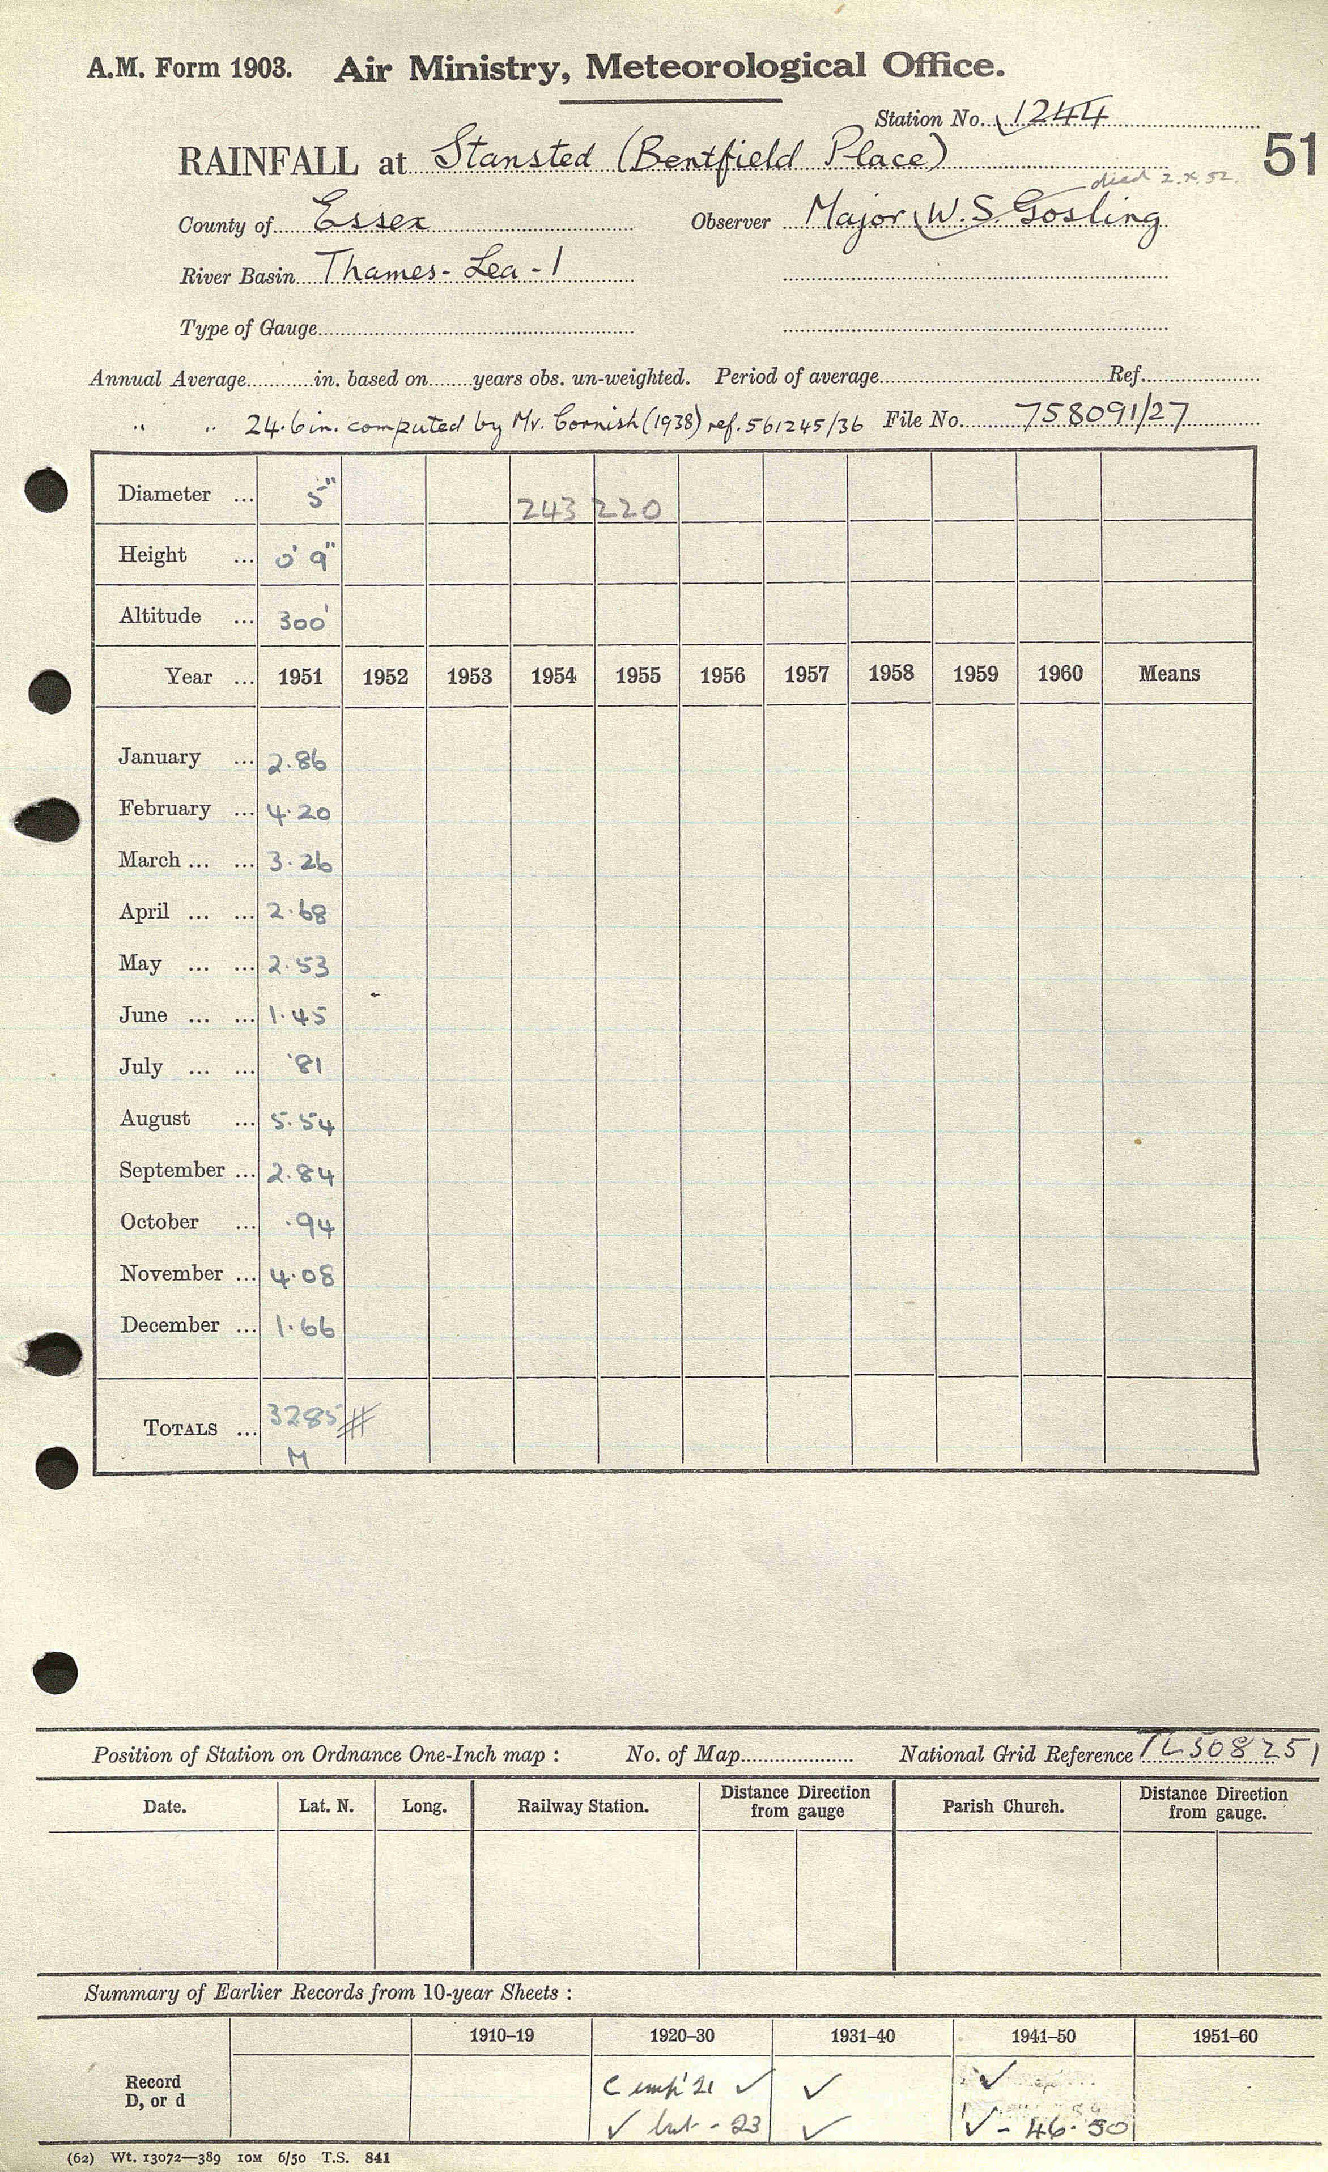 A.M. Form 1903. Air Ministry, Meteorological Office.
Station No. 1244
RAINFALL at Stansted (Bentfield Place) 51
died 2.x.52.
County of Essex Observer Major W.S. Gosling
River Basin Thames - Lea - 1
Type of Gauge
Annual Average in. based on years obs. un-weighted. Period of average Ref.
" " 24.6 in. computed by Mr. Cornish (1938) ref. 561245/36 File No. 758091/27
Diameter ... 5" 243 220
Height ... 0' 9"
Altitude ... 300'
Year ... 1951 1952 1953 1954 1955 1956 1957 1958 1959 1960 Means
January ... 2.86
February ... 4.20
March ... ... 3.26
April ... ... 2.68
May ... ... 2.53
June ... ... 1.45
July ... ... .81
August ... 5.54
September ... 2.84
October ... .94
November ... 4.08
December ... 1.66
TOTALS ... 3285 #
M
Position of Station on Ordnance One-Inch map : No. of Map National Grid Reference TL508251
Date. Lat. N. Long. Railway Station. Distance Direction from gauge Parish Church. Distance Direction from gauge.
Summary of Earlier Records from 10-year Sheets :
1910–19 1920–30 1931–40 1941–50 1951–60
Record C '21 ✓ ✓ ✓
D, or d ✓ but - 23 ✓ ✓ - 46-50
(62) Wt. 13072—389 10M 6/50 T.S. 841